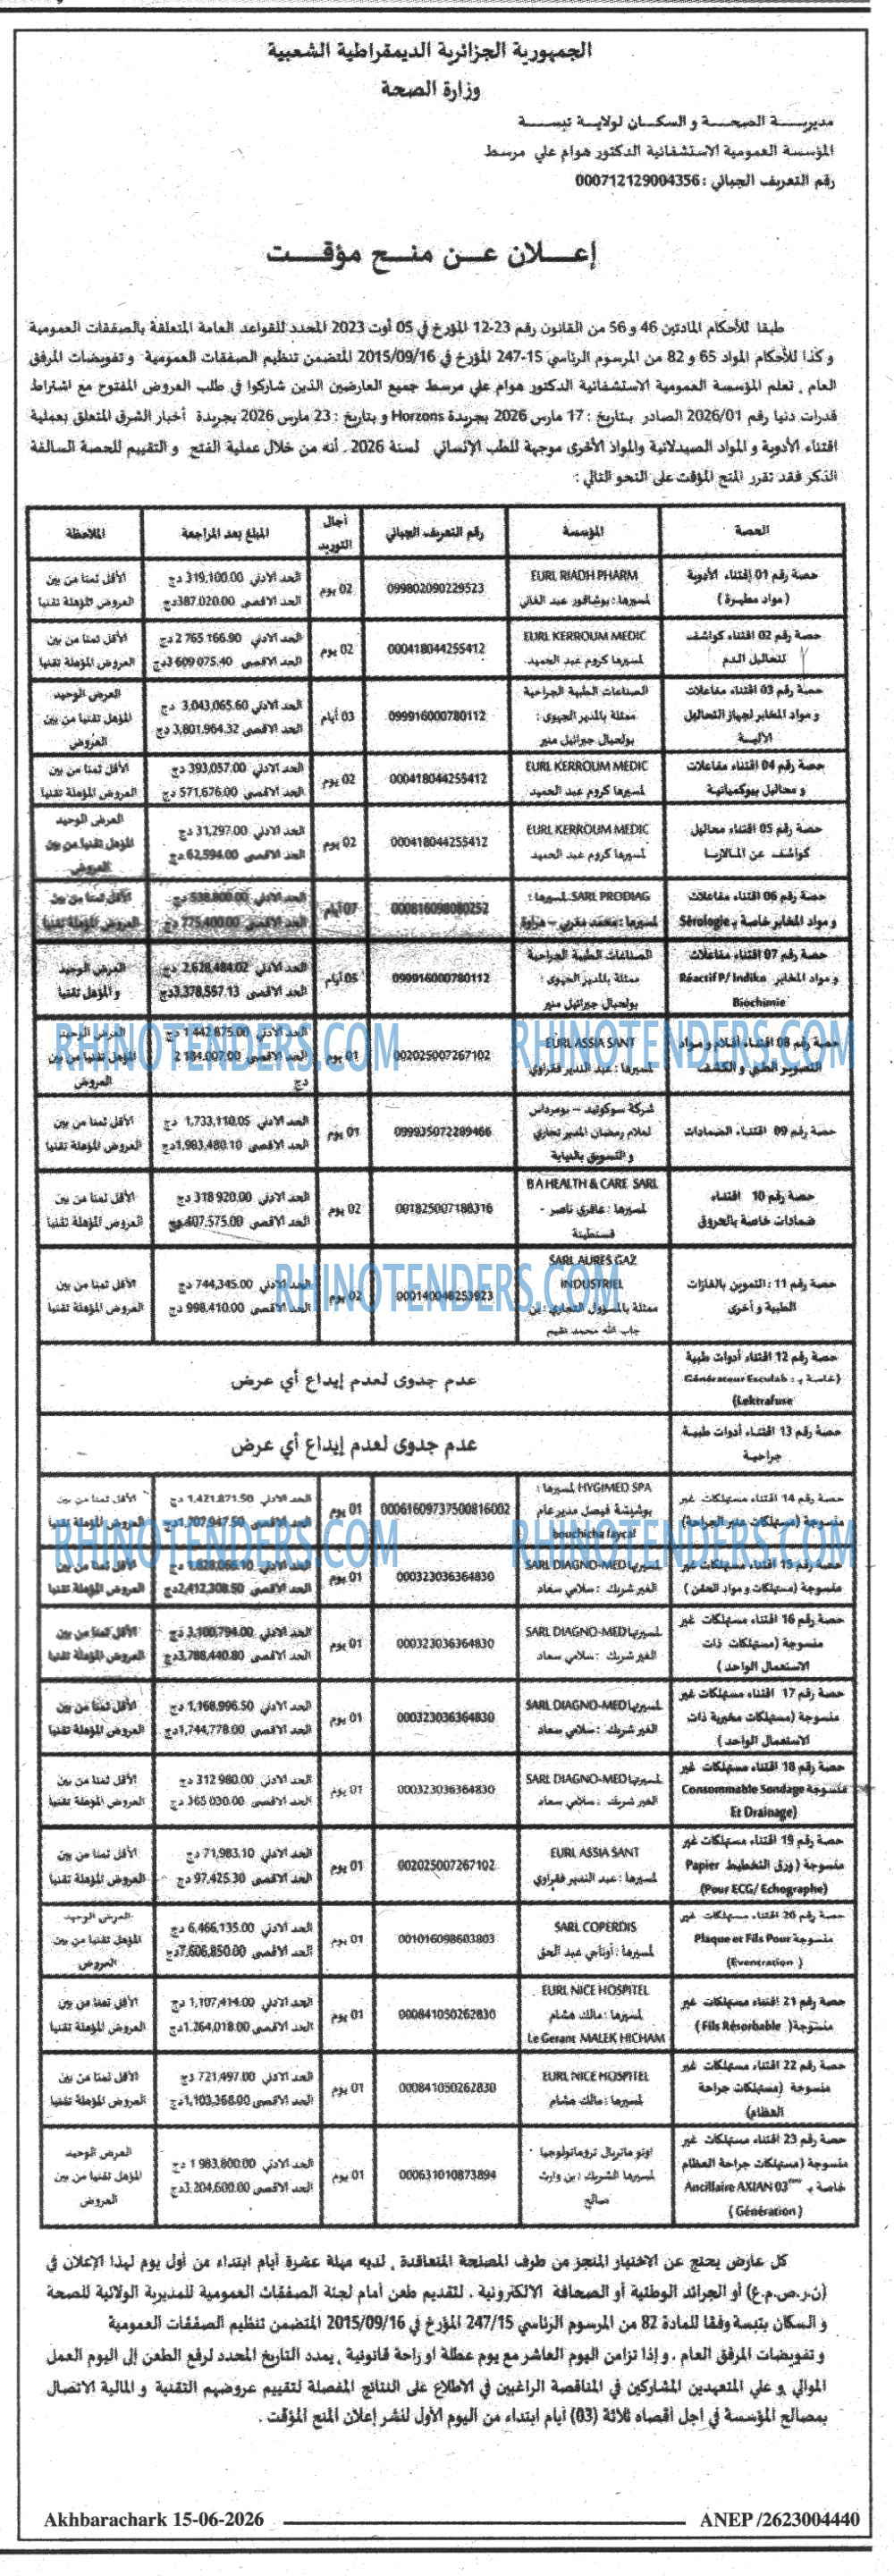 الجمهورية الجزائرية الديمقراطية الشعبية
وزارة الصحة
مديريـــة الصحـــة و السكـــان لولايـة تبســـة
المؤسسة العمومية الاستشفائية الدكتور هوام علي مرسط
رقم التعريف الجبائي : 000712129004356
إعـــلان عـــن منـــح مؤقـــت
طبقا للأحكام المادتين 46 و 56 من القانون رقم 23-12 المؤرخ في 05 أوت 2023 المحدد للقواعد العامة المتعلقة بالصفقات العمومية
و كذا للأحكام المواد 65 و 82 من المرسوم الرئاسي 15-247 المؤرخ في 2015/09/16 المتضمن تنظيم الصفقات العمومية و تفويضات المرفق
العام ، تعلم المؤسسة العمومية الاستشفائية الدكتور هوام علي مرسط جميع العارضين الذين شاركوا في طلب العروض المفتوح مع اشتراط
قدرات دنيا رقم 2026/01 الصادر بتاريخ : 17 مارس 2026 بجريدة Horzons و بتاريخ : 23 مارس 2026 بجريدة أخبار الشرق المتعلق بعملية
اقتناء الأدوية و المواد الصيدلانية والمواد الأخرى موجهة للطب الإنساني لسنة 2026 . أنه من خلال عملية الفتح و التقييم للحصة السالفة
الذكر فقد تقرر المنح المؤقت على النحو التالي :
الحصة | المؤسسة | رقم التعريف الجبائي | أجال التوريد | المبلغ بعد المراجعة | الملاحظة
حصة رقم 01 إقتناء الأدوية (مواد مطهرة ) | EURL RIADH PHARM لمسيرها : بوشاقور عبد الغاني | 099802090229523 | 02 يوم | الحد الادنى 319,100.00 دج الحد الاقصى 387.020.00دج | الأقل ثمنا من بين العروض المؤهلة تقنيا
حصة رقم 02 اقتناء كواشف لتحاليل الدم | EURL KERROUM MEDIC لمسيرها كروم عبد الحميد | 000418044255412 | 02 يوم | الحد الادنى 2 765 166.90 دج الحد الاقصى 3 609 075.40دج | الأقل ثمنا من بين العروض المؤهلة تقنيا
حصة رقم 03 اقتناء مفاعلات و مواد المخابر لجهاز التحاليل الألية | الصناعات الطبية الجراحية ممثلة بالمدير الجهوي : بولحبال جبرائيل منير | 099916000780112 | 03 أيام | الحد الادنى 3,043,065.60 دج الحد الاقصى 3,801,964.32 دج | العرض الوحيد المؤهل تقنيا من بين العروض
حصة رقم 04 اقتناء مفاعلات و محاليل بيوكميائية | EURL KERROUM MEDIC لمسيرها كروم عبد الحميد | 000418044255412 | 02 يوم | الحد الادنى 393,057.00 دج الحد الاقصى 571,676.00 دج | الأقل ثمنا من بين العروض المؤهلة تقنيا
حصة رقم 05 اقتناء محاليل كواشف عن المالاريا | EURL KERROUM MEDIC لمسيرها كروم عبد الحميد | 000418044255412 | 02 يوم | الحد الادنى 31,297.00 دج الحد الاقصى 62,594.00 دج | العرض الوحيد المؤهل تقنيا من بين العروض
حصة رقم 06 اقتناء مفاعلات و مواد المخابر خاصة بـ Sérologie | SARL PRODIAG لمسيرها : لمسيرها : محمد مغربي – هراوة | 000816098080252 | 07 أيام | الحد الادنى 538,800.00 دج الحد الاقصى 775,400.00 دج | الأقل ثمنا من بين العروض المؤهلة تقنيا
حصة رقم 07 اقتناء مفاعلات و مواد المخابر Réactif P/ Indiko Biochimie | الصناعات الطبية الجراحية ممثلة بالمدير الجهوي : بولحبال جبرائيل منير | 099916000780112 | 05 أيام | الحد الادنى 2,628,484.02 دج الحد الاقصى 3,378,557.13دج | العرض الوحيد و المؤهل تقنيا
حصة رقم 08 اقتناء أفلام و مواد التصوير الطبي و الكشف | EURL ASSIA SANT لمسيرها : عبد القدير فقراوي | 002025007267102 | 01 يوم | الحد الادنى 1 442 875.00 دج الحد الاقصى 2 184.007.00 دج | العرض الوحيد المؤهل تقنيا من بين العروض
حصة رقم 09 اقتناء الضمادات | شركة سوكوتيد – بومرداس لعلام رمضان المدير تجاري و التسويق بالنيابة | 099935072289466 | 01 يوم | الحد الادنى 1,733,110.05 دج الحد الاقصى 1,983,480.10دج | الأقل ثمنا من بين العروض المؤهلة تقنيا
حصة رقم 10 اقتناء ضمادات خاصة بالحروق | B A HEALTH & CARE SARL لمسيرها : عافري ناصر - قسنطينة | 001825007188316 | 02 يوم | الحد الادنى 318 920.00 دج الحد الاقصى 407.575.00 دج | الأقل ثمنا من بين العروض المؤهلة تقنيا
حصة رقم 11 : التموين بالغازات الطبية و أخرى | SARL AURES GAZ INDUSTRIEL ممثلة بالمسؤول التجاري : بن جاب الله محمد مقيم | 000140046253923 | 02 يوم | الحد الادنى 744,345.00 دج الحد الاقصى 998,410.00 دج | الأقل ثمنا من بين العروض المؤهلة تقنيا
حصة رقم 12 اقتناء أدوات طبية (خاصة بـ : Générateur Esculab Lektrafuse) | عدم جدوى لعدم إيداع أي عرض
حصة رقم 13 اقتناء أدوات طبية جراحية | عدم جدوى لعدم إيداع أي عرض
حصة رقم 14 اقتناء مستهلكات غير منسوجة (مستهلكات مخبر الجراحة) | HYGIMED SPA لمسيرها : بوشيشة فيصل مدير عام bouchicha faycal | 00061609737500816002 | 01 يوم | الحد الادنى 1.421.871.50 دج الحد الاقصى 1,707,947.50 دج | الأقل ثمنا من بين العروض المؤهلة تقنيا
حصة رقم 15 اقتناء مستهلكات غير منسوجة (مستهلكات و مواد الحقن ) | SARL DIAGNO-MED لمسيرها الغير شريك : سلامي سعاد | 000323036364830 | 01 يوم | الحد الادنى 1,828,066.10 دج الحد الاقصى 2,412,308.50دج | الأقل ثمنا من بين العروض المؤهلة تقنيا
حصة رقم 16 اقتناء مستهلكات غير منسوجة (مستهلكات ذات الاستعمال الواحد ) | SARL DIAGNO-MED لمسيرها الغير شريك : سلامي سعاد | 000323036364830 | 01 يوم | الحد الادنى 3,100,794.00 دج الحد الاقصى 3,788,440.80دج | الأقل ثمنا من بين العروض المؤهلة تقنيا
حصة رقم 17 اقتناء مستهلكات غير منسوجة (مستهلكات مخبرية ذات الاستعمال الواحد ) | SARL DIAGNO-MED لمسيرها الغير شريك : سلامي سعاد | 000323036364830 | 01 يوم | الحد الادنى 1,168,996.50 دج الحد الاقصى 1,744,778.00دج | الأقل ثمنا من بين العروض المؤهلة تقنيا
حصة رقم 18 اقتناء مستهلكات غير منسوجة Consommable Sondage Et Drainage) | SARL DIAGNO-MED لمسيرها الغير شريك : سلامي سعاد | 000323036364830 | 01 يوم | الحد الادنى 312 980.00 دج الحد الاقصى 365 030.00 دج | الأقل ثمنا من بين العروض المؤهلة تقنيا
حصة رقم 19 اقتناء مستهلكات غير منسوجة (ورق التخطيط Papier Pour ECG/ Echographe) | EURL ASSIA SANT لمسيرها : عبد القدير فقراوي | 002025007267102 | 01 يوم | الحد الادنى 71,983.10 دج الحد الاقصى 97.425.30 دج | الأقل ثمنا من بين العروض المؤهلة تقنيا
حصة رقم 20 اقتناء مستهلكات غير منسوجة Plaque et Fils Pour Eventration ) | SARL COPERDIS لمسيرها : أوناجي عبد الحق | 001016098603803 | 01 يوم | الحد الادنى 6,466,135.00 دج الحد الاقصى 7,606,850.00دج | العرض الوحيد المؤهل تقنيا من بين العروض
حصة رقم 21 اقتناء مستهلكات غير منسوجة( Fils Résorbable ) | EURL NICE HOSPITEL لمسيرها : مالك هشام Le Gerant MALEK HICHAM | 000841050262830 | 01 يوم | الحد الادنى 1,107,414.00 دج الحد الاقصى 1.264,018.00دج | الأقل ثمنا من بين العروض المؤهلة تقنيا
حصة رقم 22 اقتناء مستهلكات غير منسوجة (مستهلكات جراحة العظام) | EURL NICE HOSPITEL لمسيرها : مالك هشام | 000841050262830 | 01 يوم | الحد الادنى 721,497.00 دج الحد الاقصى 1,103,368.00دج | الأقل ثمنا من بين العروض المؤهلة تقنيا
حصة رقم 23 اقتناء مستهلكات غير منسوجة (مستهلكات جراحة العظام خاصة بـ Ancillaire AXIAN 03 Génération ) | اوتو ماتريال تروماتولوجيا لمسيرها الشريك : بن وارث صالح | 000631010873894 | 01 يوم | الحد الادنى 1 983,800.00 دج الحد الاقصى 3,204,600.00دج | العرض الوحيد المؤهل تقنيا من بين العروض
كل عارض يحتج عن الاختيار المنجز من طرف المصلحة المتعاقدة ، لديه مهلة عشرة أيام ابتداء من أول يوم لهذا الإعلان في
(ن.ر.ص.م.ع) أو الجرائد الوطنية أو الصحافة الالكترونية . لتقديم طعن أمام لجنة الصفقات العمومية للمديرية الولائية للصحة
و السكان بتبسة وفقا للمادة 82 من المرسوم الرئاسي 247/15 المؤرخ في 2015/09/16 المتضمن تنظيم الصفقات العمومية
و تفويضات المرفق العام . و إذا تزامن اليوم العاشر مع يوم عطلة او راحة قانونية ، يمدد التاريخ المحدد لرفع الطعن إلى اليوم العمل
الموالي و على المتعهدين المشاركين في المناقصة الراغبين في الاطلاع على النتائج المفصلة لتقييم عروضهم التقنية و المالية الاتصال
بمصالح المؤسسة في اجل أقصاه ثلاثة (03) أيام ابتداء من اليوم الأول لنشر إعلان المنح المؤقت .
Akhbarachark 15-06-2026
ANEP /2623004440
RHINOTENDERS.COM
RHINOTENDERS.COM
RHINOTENDERS.COM
RHINOTENDERS.COM
RHINOTENDERS.COM